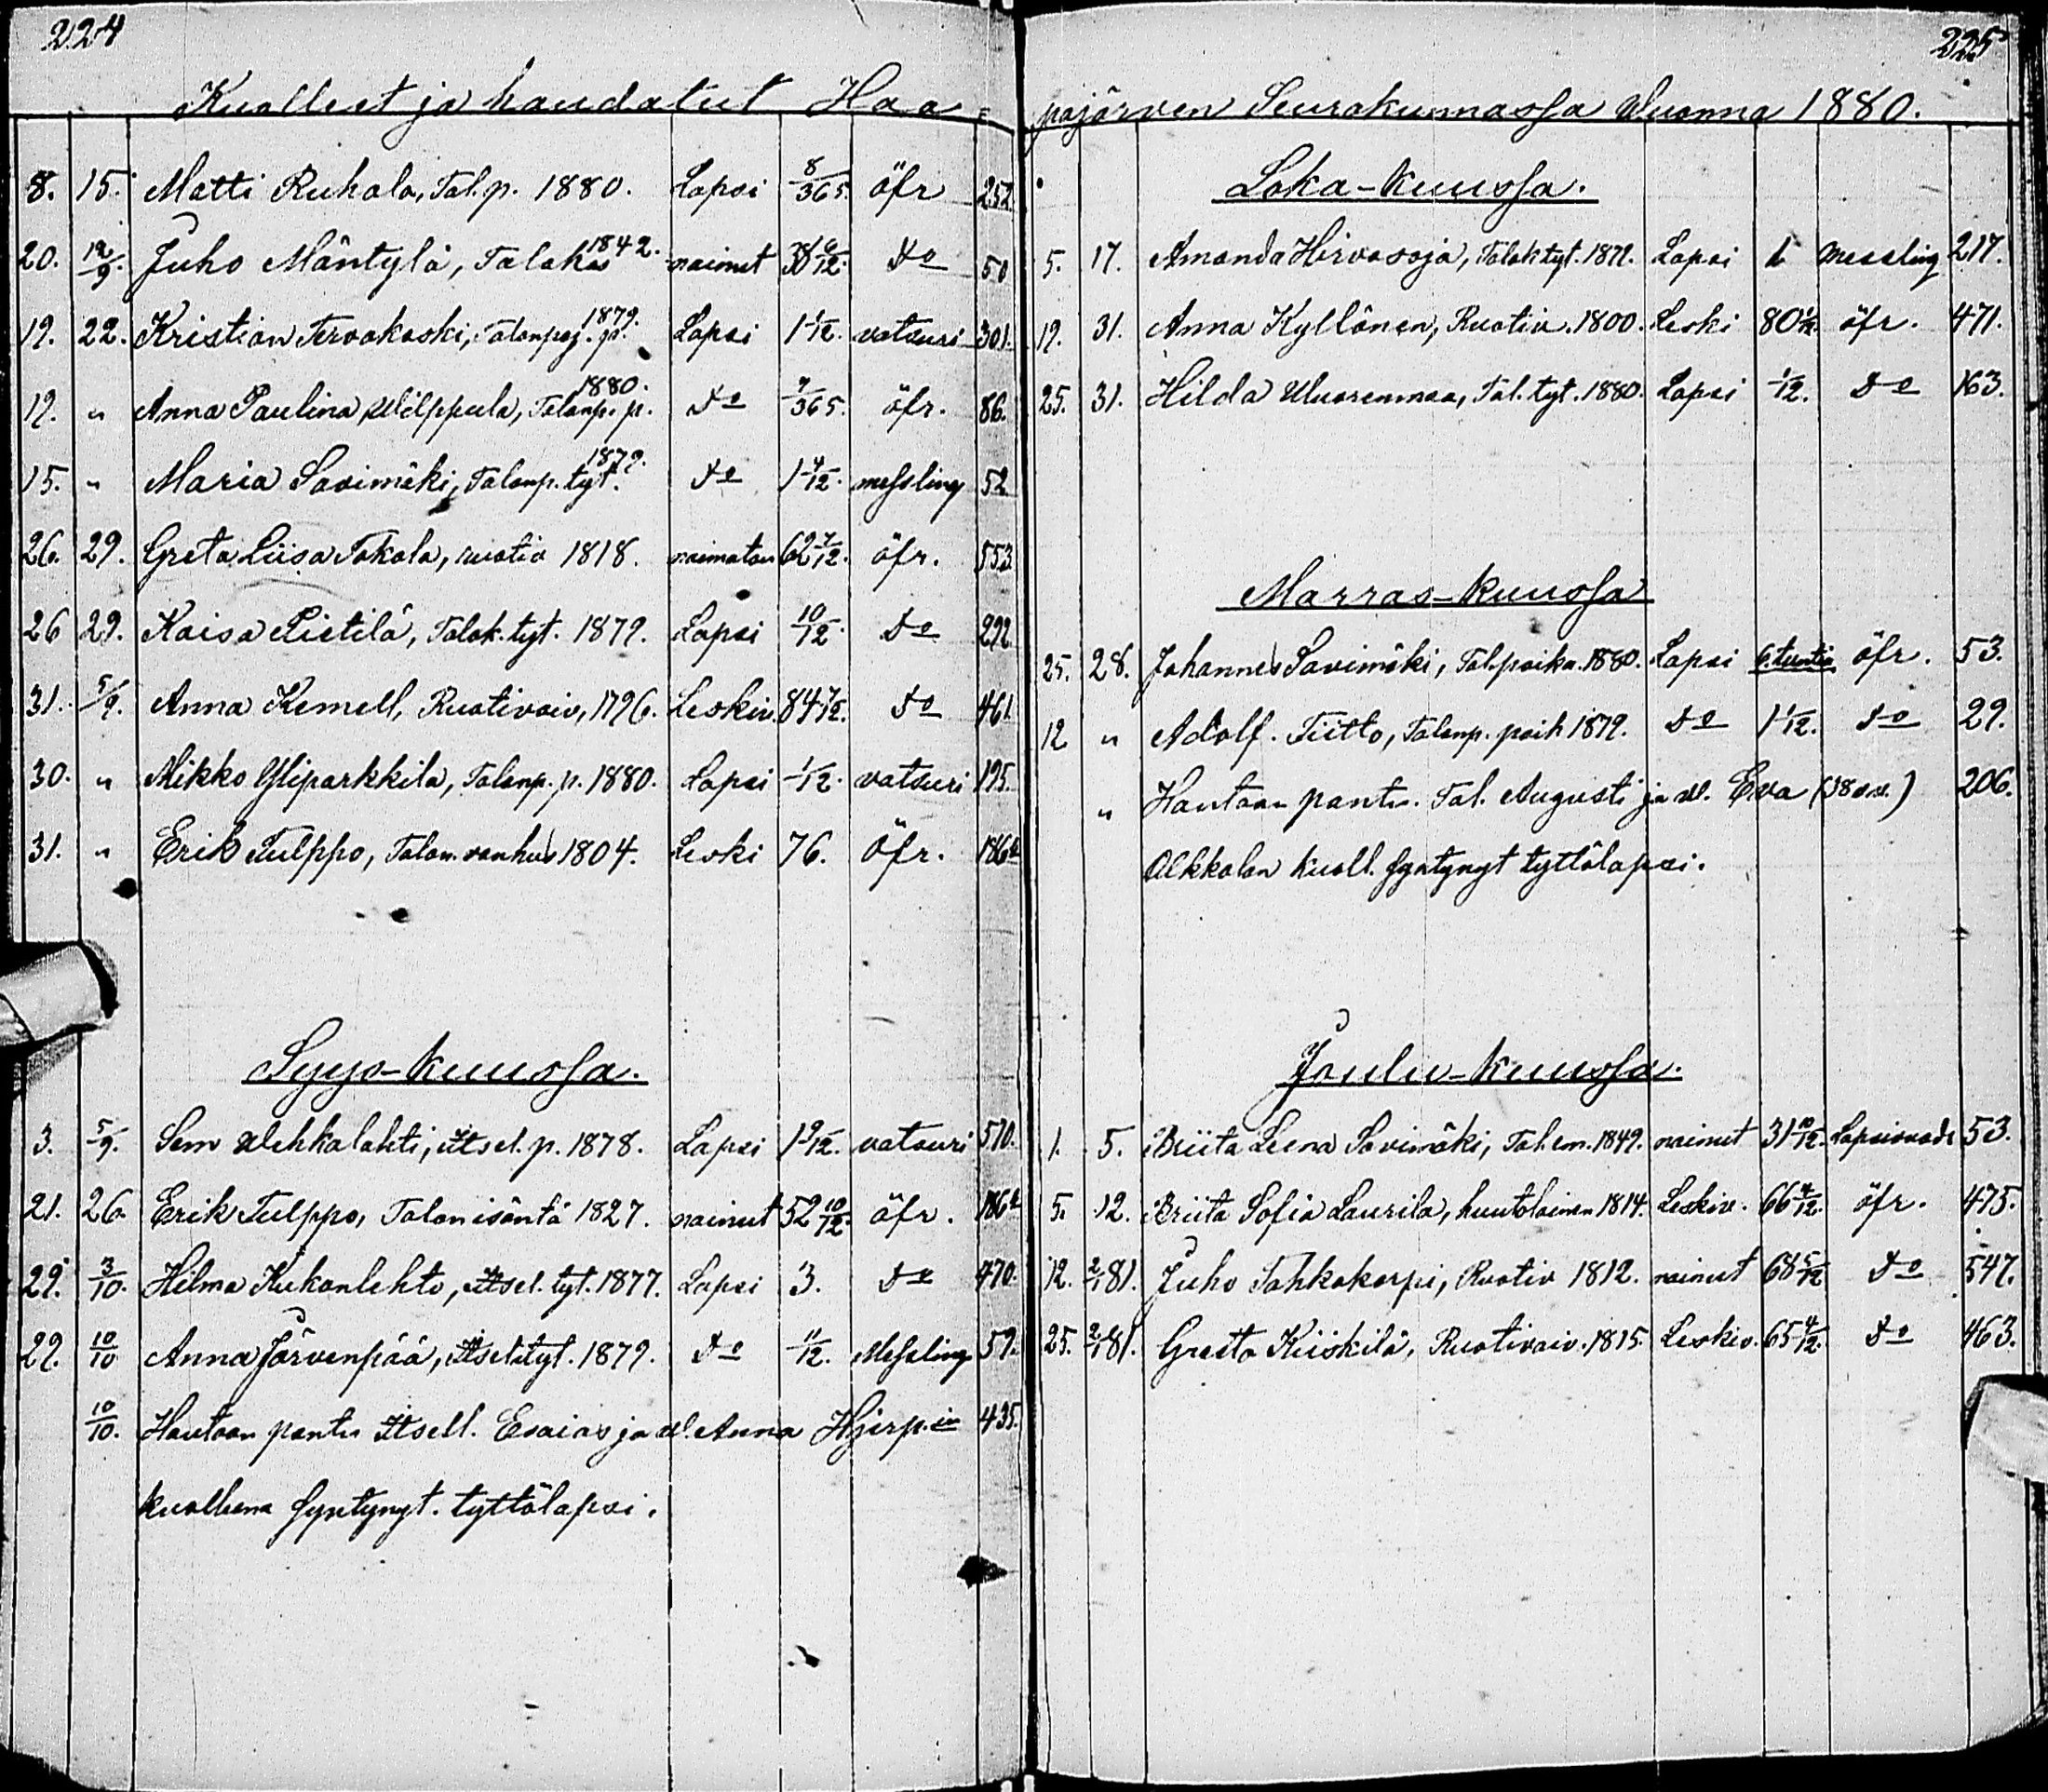 224
Kuolleet ja haudatut Haa=
8. 15. Matti Ruhala, Tal. p. 1880. Lapsi 8/365. öfr 252.
20. 12/9. Juho Mäntylä, Talokas 1842. nainut 38 6/12. do 50
19. 22. Kristian Tervakoski, Talonpoj. p. 1879. Lapsi 1 1/12. vatsuri 301.
19. " Anna Paulina Wilppula, Talonp. p. 1880. do 9/365. öfr. 86.
15. " Maria Savimäki, Talonp. tyt. 1879. do 1 4/12. messling 52
26. 29. Greta Liisa Tokola, ruotiv 1818. naimaton 62 7/12. öfr. 553.
26 29. Kaisa Pietilä, Talok. tyt. 1879. Lapsi 10/12. do 292.
31. 5/9. Anna Kemell, Ruotivaiv, 1796. Leskiv. 84 7/12. do 461.
30. " Mikko Yliparkkila, Talonp. p. 1880. Lapsi 1/12. vatsuri 195.
31. " Erik Tulppo, Talon vanhus 1804. Leski 76. Öfr. 186
Syys-kuussa.
3. 5/9. Sem Wehkalahti, Itsel. p. 1878. Lapsi 1 9/12. vatsuri 570.
21. 26. Erik Tulppo, Talon isäntä 1827. nainut 52 10/12. öfr. 186
29. 3/10. Hilma Kukonlehto, Itsel. tyt. 1877. Lapsi 3. do 470.
29. 10/10 Anna Järvenpää, Itsel. tyt. 1879. do 11/12. Messling 59.
10/10. Hautaan pantu Itsell. Esaias ja w. Anna Hjerp.in 435.
kuolleena syntynyt. tyttölapsi.
225
pajärven Seurakunnassa Wuonna 1880.
Loka-kuussa.
5. 17. Amanda Hirvasoja, Talok tyt. 1879. Lapsi 1 messling 217.
19. 31. Anna Kyllönen, Ruotiv. 1800. Leski 80 öfr. 471.
25. 31. Hilda Wuorenmaa, Tal. tyt. 1880. Lapsi 1/12. do 163.
Marras-kuussa
25. 28. Johannes Savimäki, Tal. poika. 1880. Lapsi 6. tuntia öfr. 53.
12 " Adolf. Tiitto, Talonp. poik 1879. do 1 1/12. do 29.
" Hautaan pantu. Tal. Augusti ja w. Eva (38 v.) 206.
Alkkolan kuoll. syntynyt tyttölapsi.
Joulu-kuussa.
1. 5. Briita Leena Savimäki, Tal. em. 1849. nainut 31 10/12. Lapsivuode 53.
5. 12. Briita Sofia Laurila, huutolainen 1814. Leskiv. 66 4/12. öfr. 475.
12. 2/1 81. Juho Tahkokorpi, Ruotiv 1812. nainut 68 5/12 do 547.
25. 2/1 81. Greeta Kiiskilä, Ruotivaiv. 1815. Leskiv. 65 4/12. do 463.